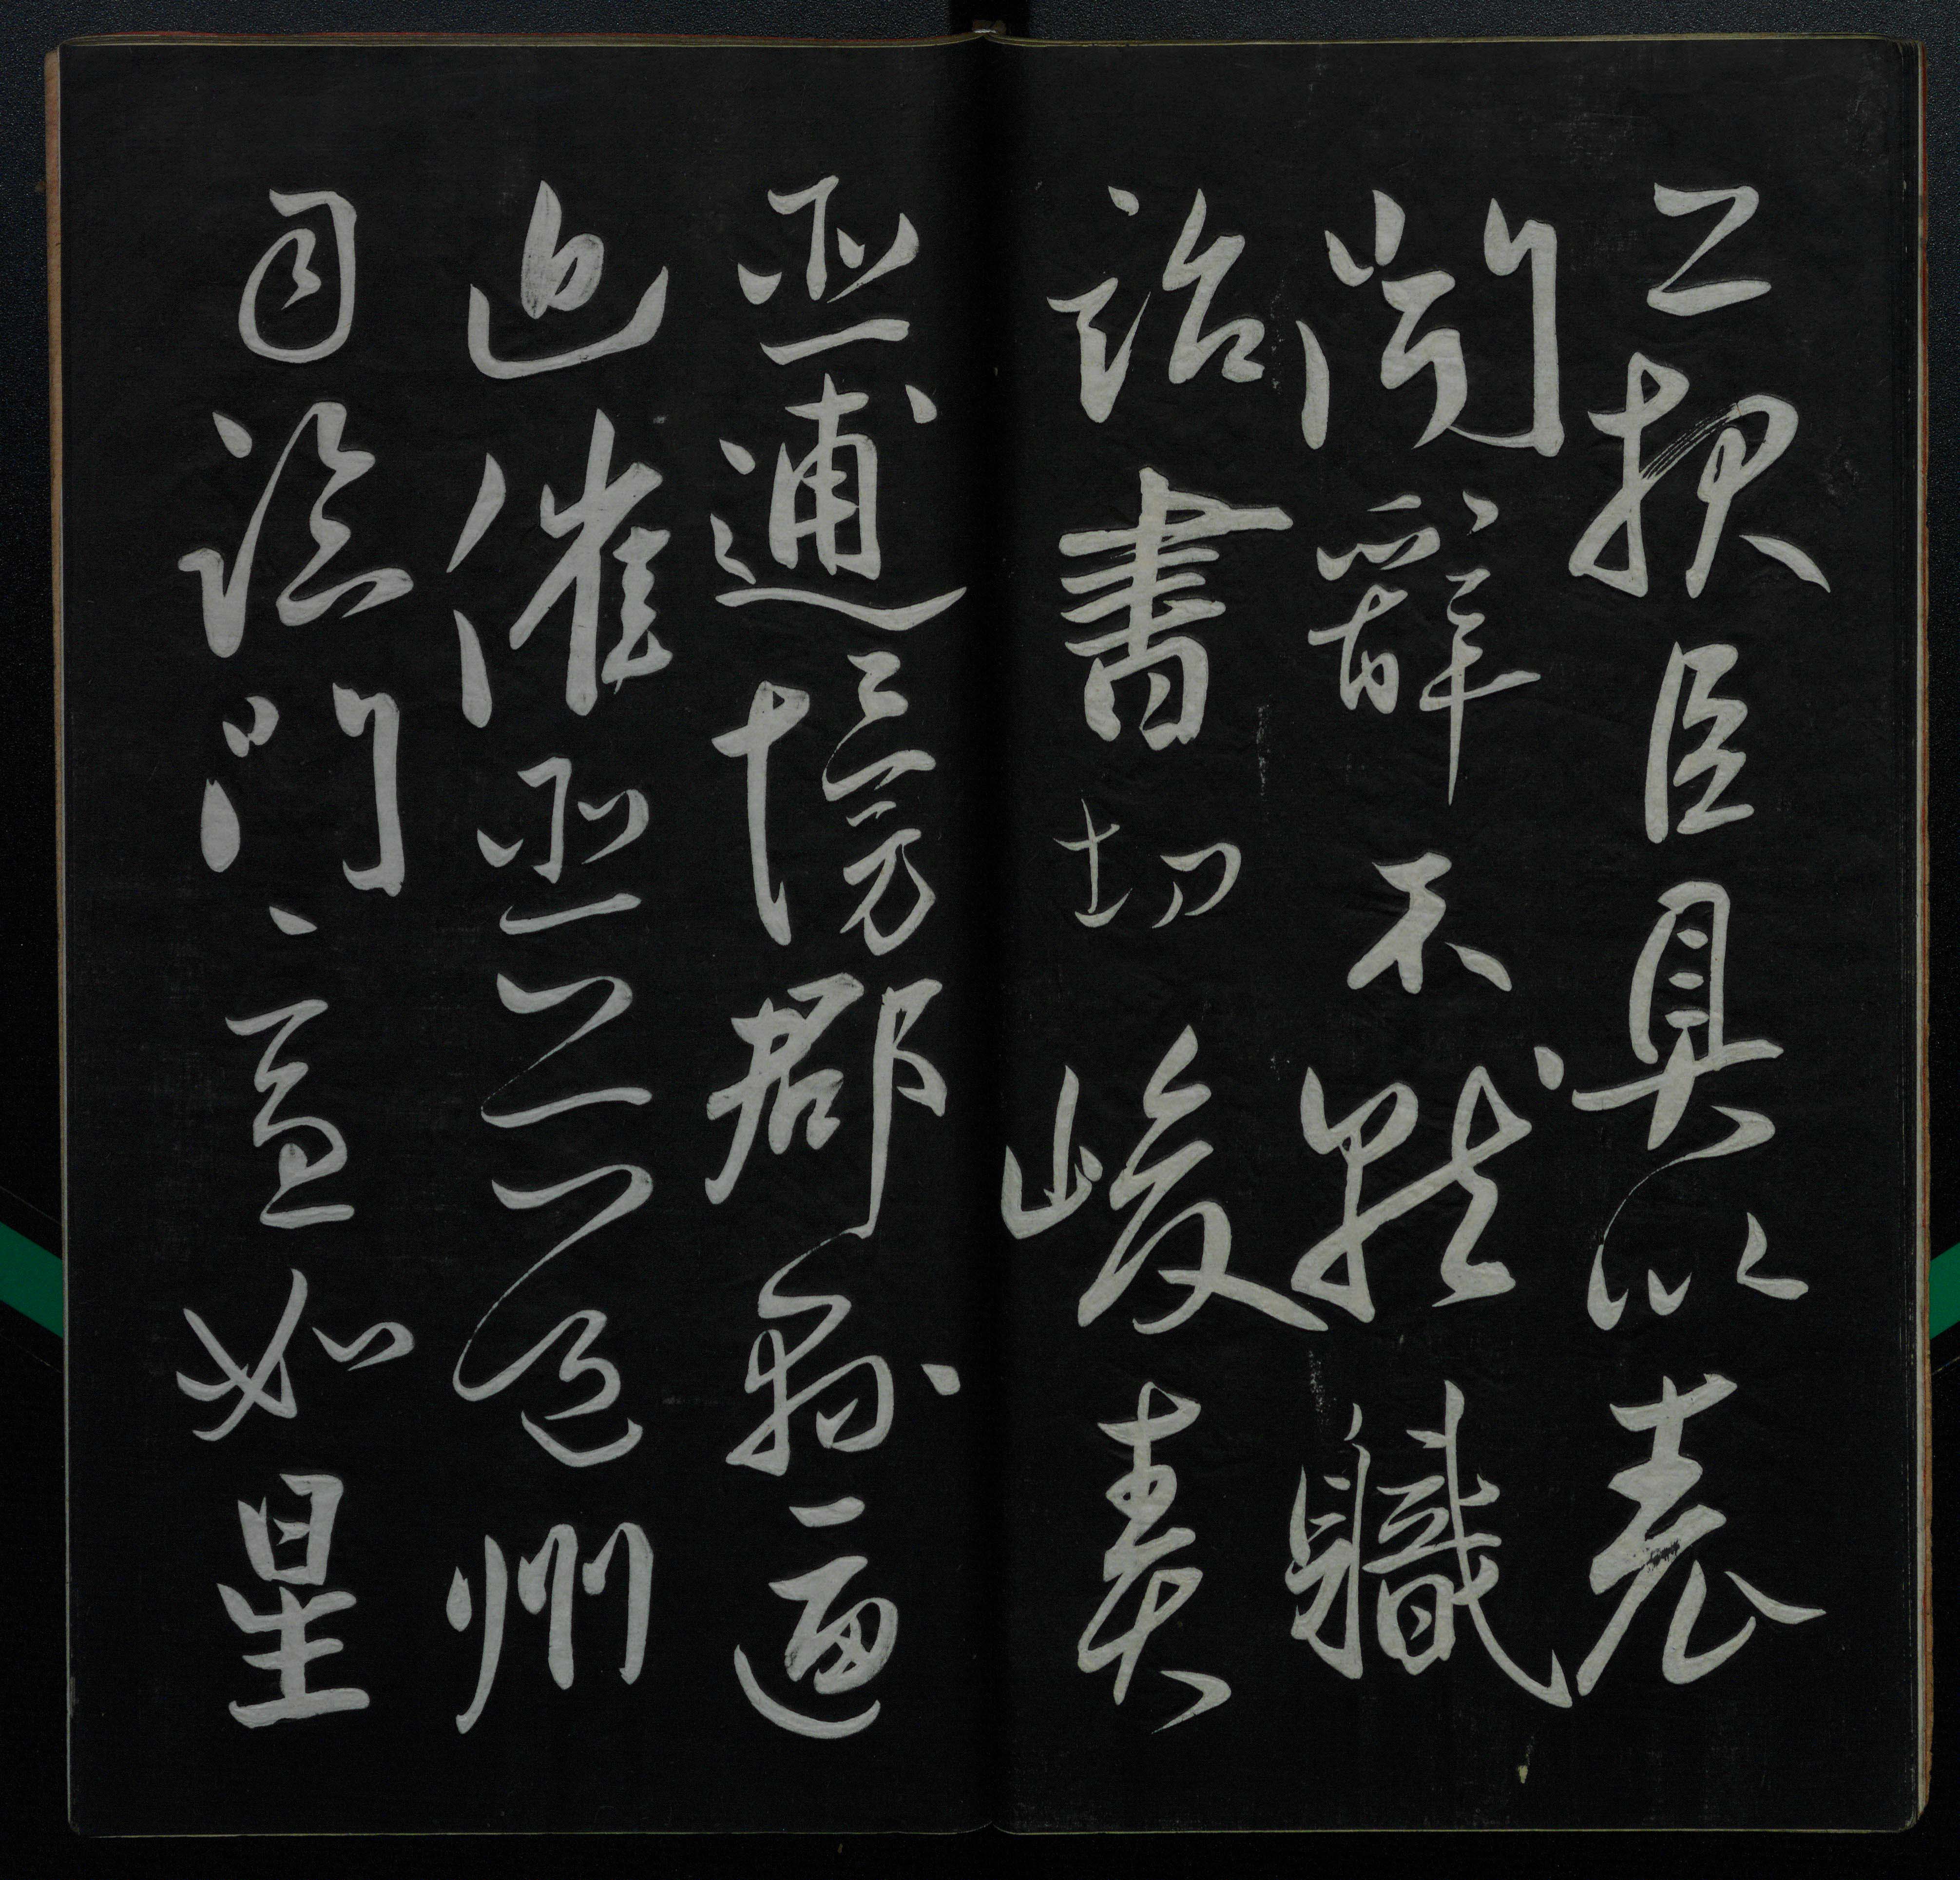 上报臣具以表
闻辭不就職
詔書切峻責
臣逋慢郡縣逼
迫催臣上道州
司臨門急如星